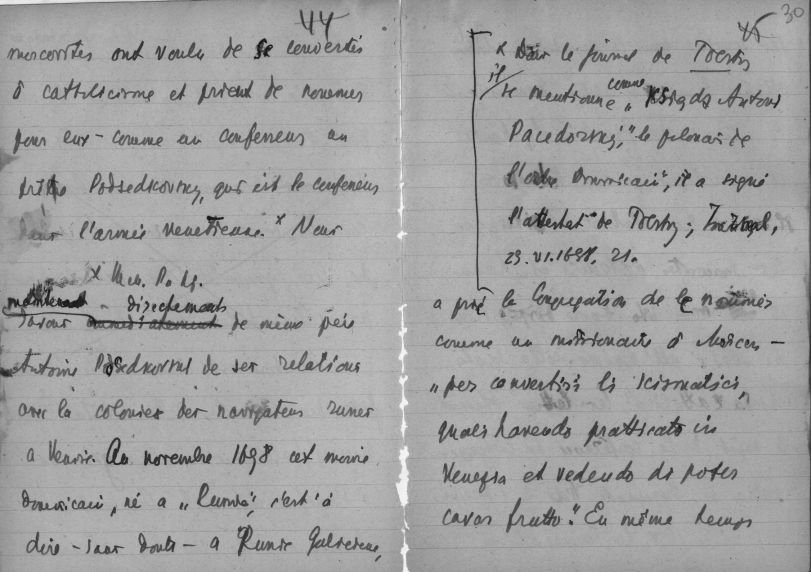 44
moscovites ont voulu de se convertir
à catholicisme et prient de nommer
pour eux - comme un confesseur un
prêtre Podsedkovsky, qui est le confesseur
dans l'armée venetienne. x Nous
x
maintenant - directement
savons immediatement de même père
Antoine Podsedkovski de ses relations
avec la colonie des navigateurs russes
a Venise. Au novembre 1698 cet moine
dominicain, né a „Russia”, c'est à
dire - sans doute - a Russie Galicienne,
30
45
x Dans le journal de Tolstoy
il
se mentionne comme „Ksiądz Antoni
", le polonais de
l'ordre Dominicain", il a signé
l'attestat de Tolstoy;
23.VI.1698. 21.
a prié la Congregation de le nommer
comme un missionaire à Moscou -
„per convertir li scismatici,
quali havendo pratticato in
Venezia et vedendo di poter
cavar frutto." En même temps